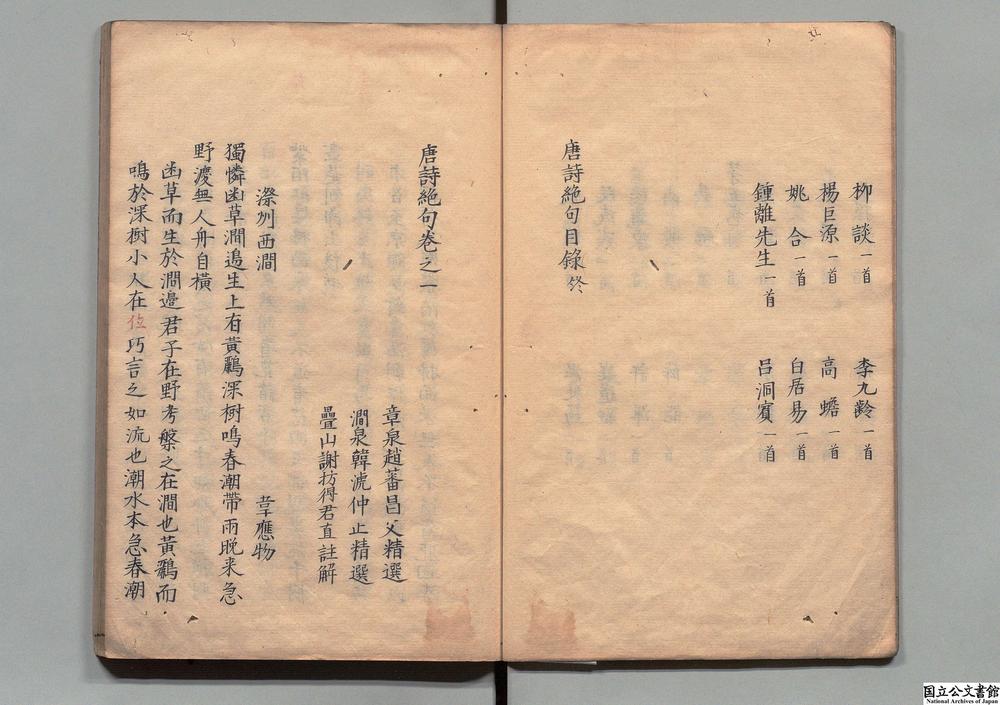 柳談一首 李九齡一首
楊巨源一首 高蟾一首
姚合一首 白居易一首
鍾離先生一首 吕洞賓一首
唐詩絶句目錄終
唐詩絶句卷之一
章泉趙蕃昌父精選
澗泉韓淲仲止精選
疊山謝枋得君直註解
滁州西澗 韋應物
獨憐幽草澗邉生上有黃鸝深樹鳴春潮帶雨晚来急
野渡無人舟自橫
幽草而生於澗邊君子在野考槃之在澗也黃鸝而
鳴於深樹小人在位巧言之如流也潮水本急春潮
国立公文書館
National Archives of Japan